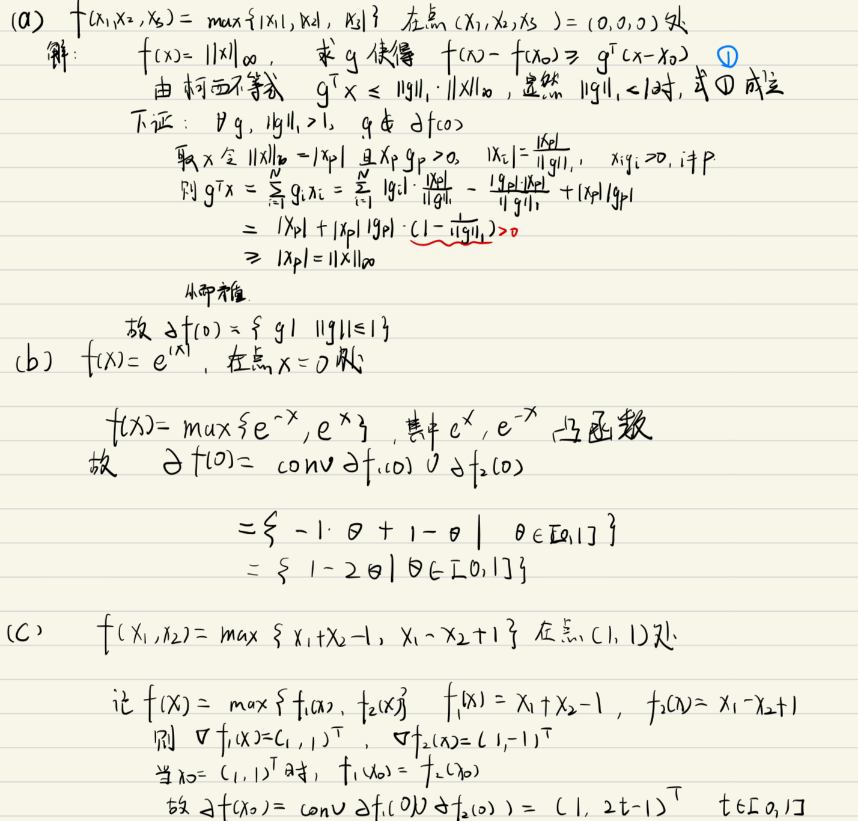 (a) f(x₁,x₂,x₃) = max{|x₁|, |x₂|, |x₃|} 在点 (x₁,x₂,x₃) = (0,0,0) 处
解: f(x) = ||x||∞, 求 g 使得 f(x) - f(x₀) ≥ gᵀ(x-x₀) ①
由柯西不等式 gᵀx ≤ ||g||₁·||x||∞, 显然 ||g||₁ < 1时, 式①成立
下证: ∀g, ||g||₁>1, g∉∂f(0)
取x 令 ||x||∞ = |xₚ| 且 xₚgₚ>0, |xᵢ| = |xₚ|/||g||₁, xᵢgᵢ>0, i≠p.
则 gᵀx = Σᵢ₌₁ᴺ gᵢxᵢ = Σᵢ₌₁ᴺ |gᵢ|·|xₚ|/||g||₁ - |gₚ|·|xₚ|/||g||₁ + |xₚ||gₚ|
= |xₚ| + |xₚ||gₚ|·(1 - 1/||g||₁) >0
≥ |xₚ| = ||x||∞
从而矛盾.
故 ∂f(0) = {g| ||g||≤1}
(b) f(x) = e^|x|, 在点 x=0 处
f(x) = max{e^-x, e^x}, 其中 e^x, e^-x 凸函数
故 ∂f(0) = conv ∂f₁(0) ∪ ∂f₂(0)
= { -1·θ + 1-θ | θ∈[0,1] }
= { 1-2θ | θ∈[0,1] }
(c) f(x₁,x₂) = max {x₁+x₂-1, x₁-x₂+1} 在点 (1,1) 处.
记 f(x) = max{f₁(x), f₂(x)} f₁(x) = x₁+x₂-1, f₂(x) = x₁-x₂+1
则 ∇f₁(x)=(1,1)ᵀ, ∇f₂(x)=(1,-1)ᵀ
当x₀=(1,1)ᵀ时, f₁(x₀) = f₂(x₀)
故 ∂f(x₀) = conv ∂f₁(0)∪∂f₂(0)) = (1, 2t-1)ᵀ t∈[0,1]